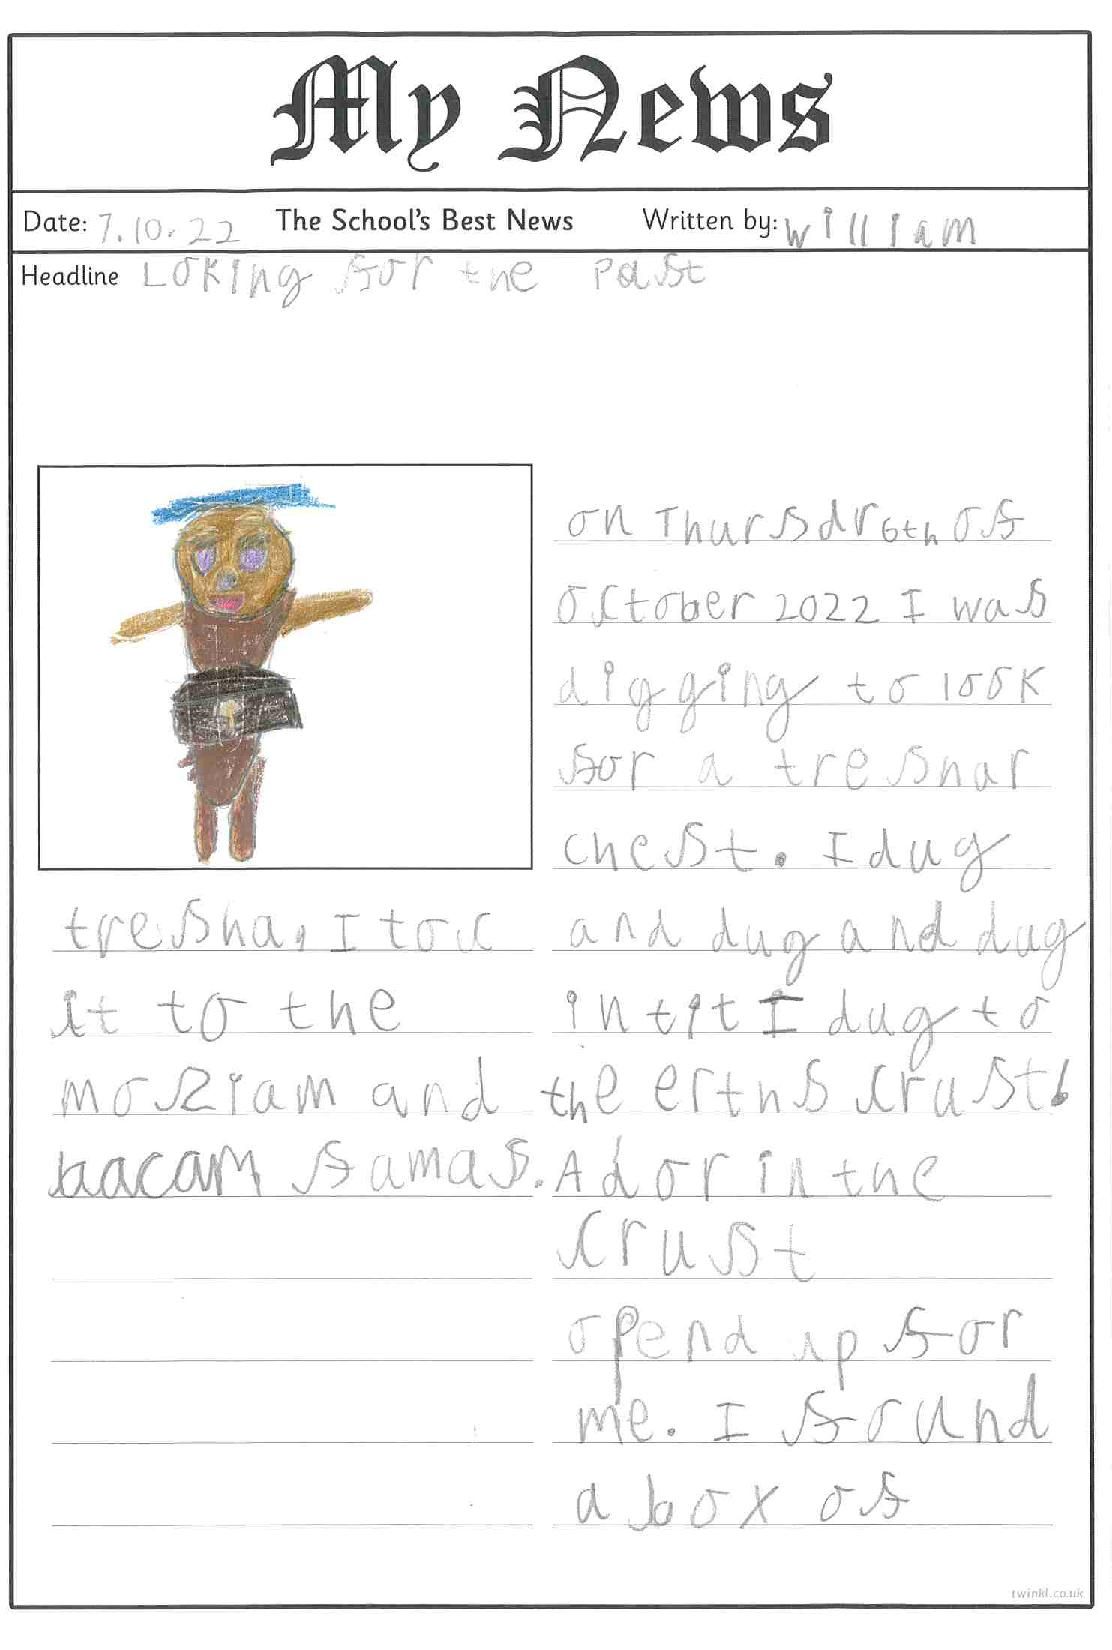 My News
Date: 7.10.22 The School's Best News Written by: william
Headline Loking for the past
on Thursdr 6th of
October 2022 I was
digging to look
for a treshar
chest. I dug
and dug and dug
intit I dug to
the erths crust.
A dor in the
crust
opend up for
me. I found
a box of
tresha, I toc
it to the
moziam and
bacam famas.
twinkl.co.uk